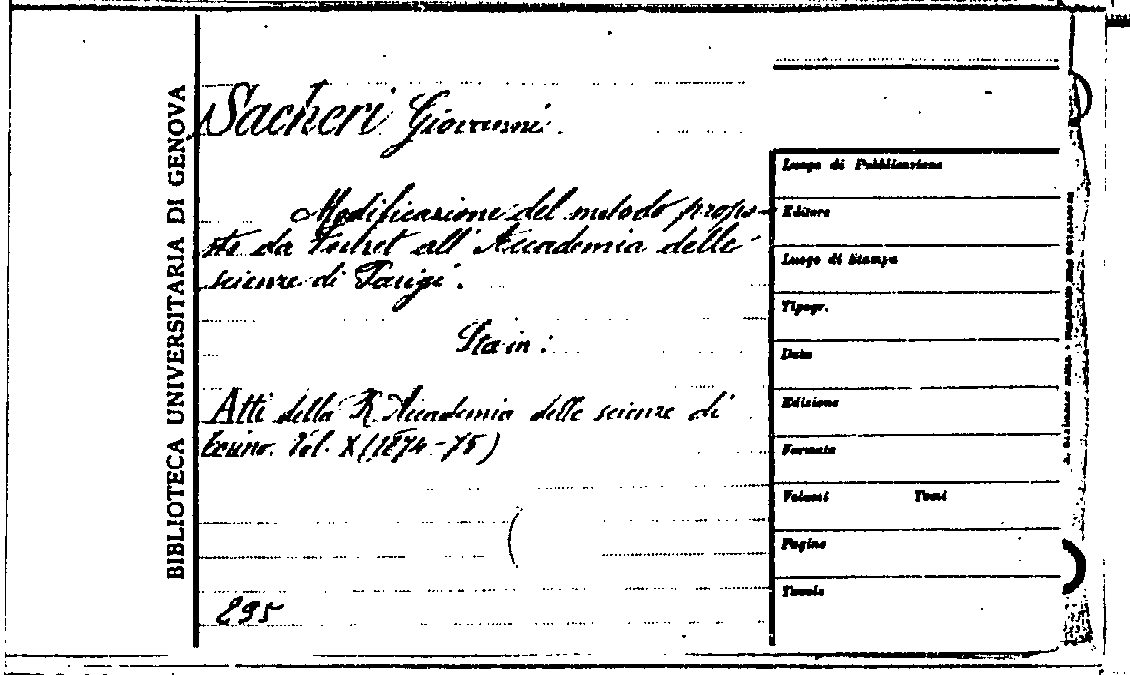 BIBLIOTECA UNIVERSITARIA DI GENOVA
Sacheri Giovanni.
Modificazione del metodo propo-
sto da all' Accademia delle
scienze di Parigi.
Sta in:
Atti della R. Accademia delle scienze di
Torino. Vol. X (1874-75)
295
Luogo di Pubblicazione
Editore
Luogo di Stampa
Tipogr.
Data
Edizione
Formato
Volumi Tomi
Pagine
Tavole